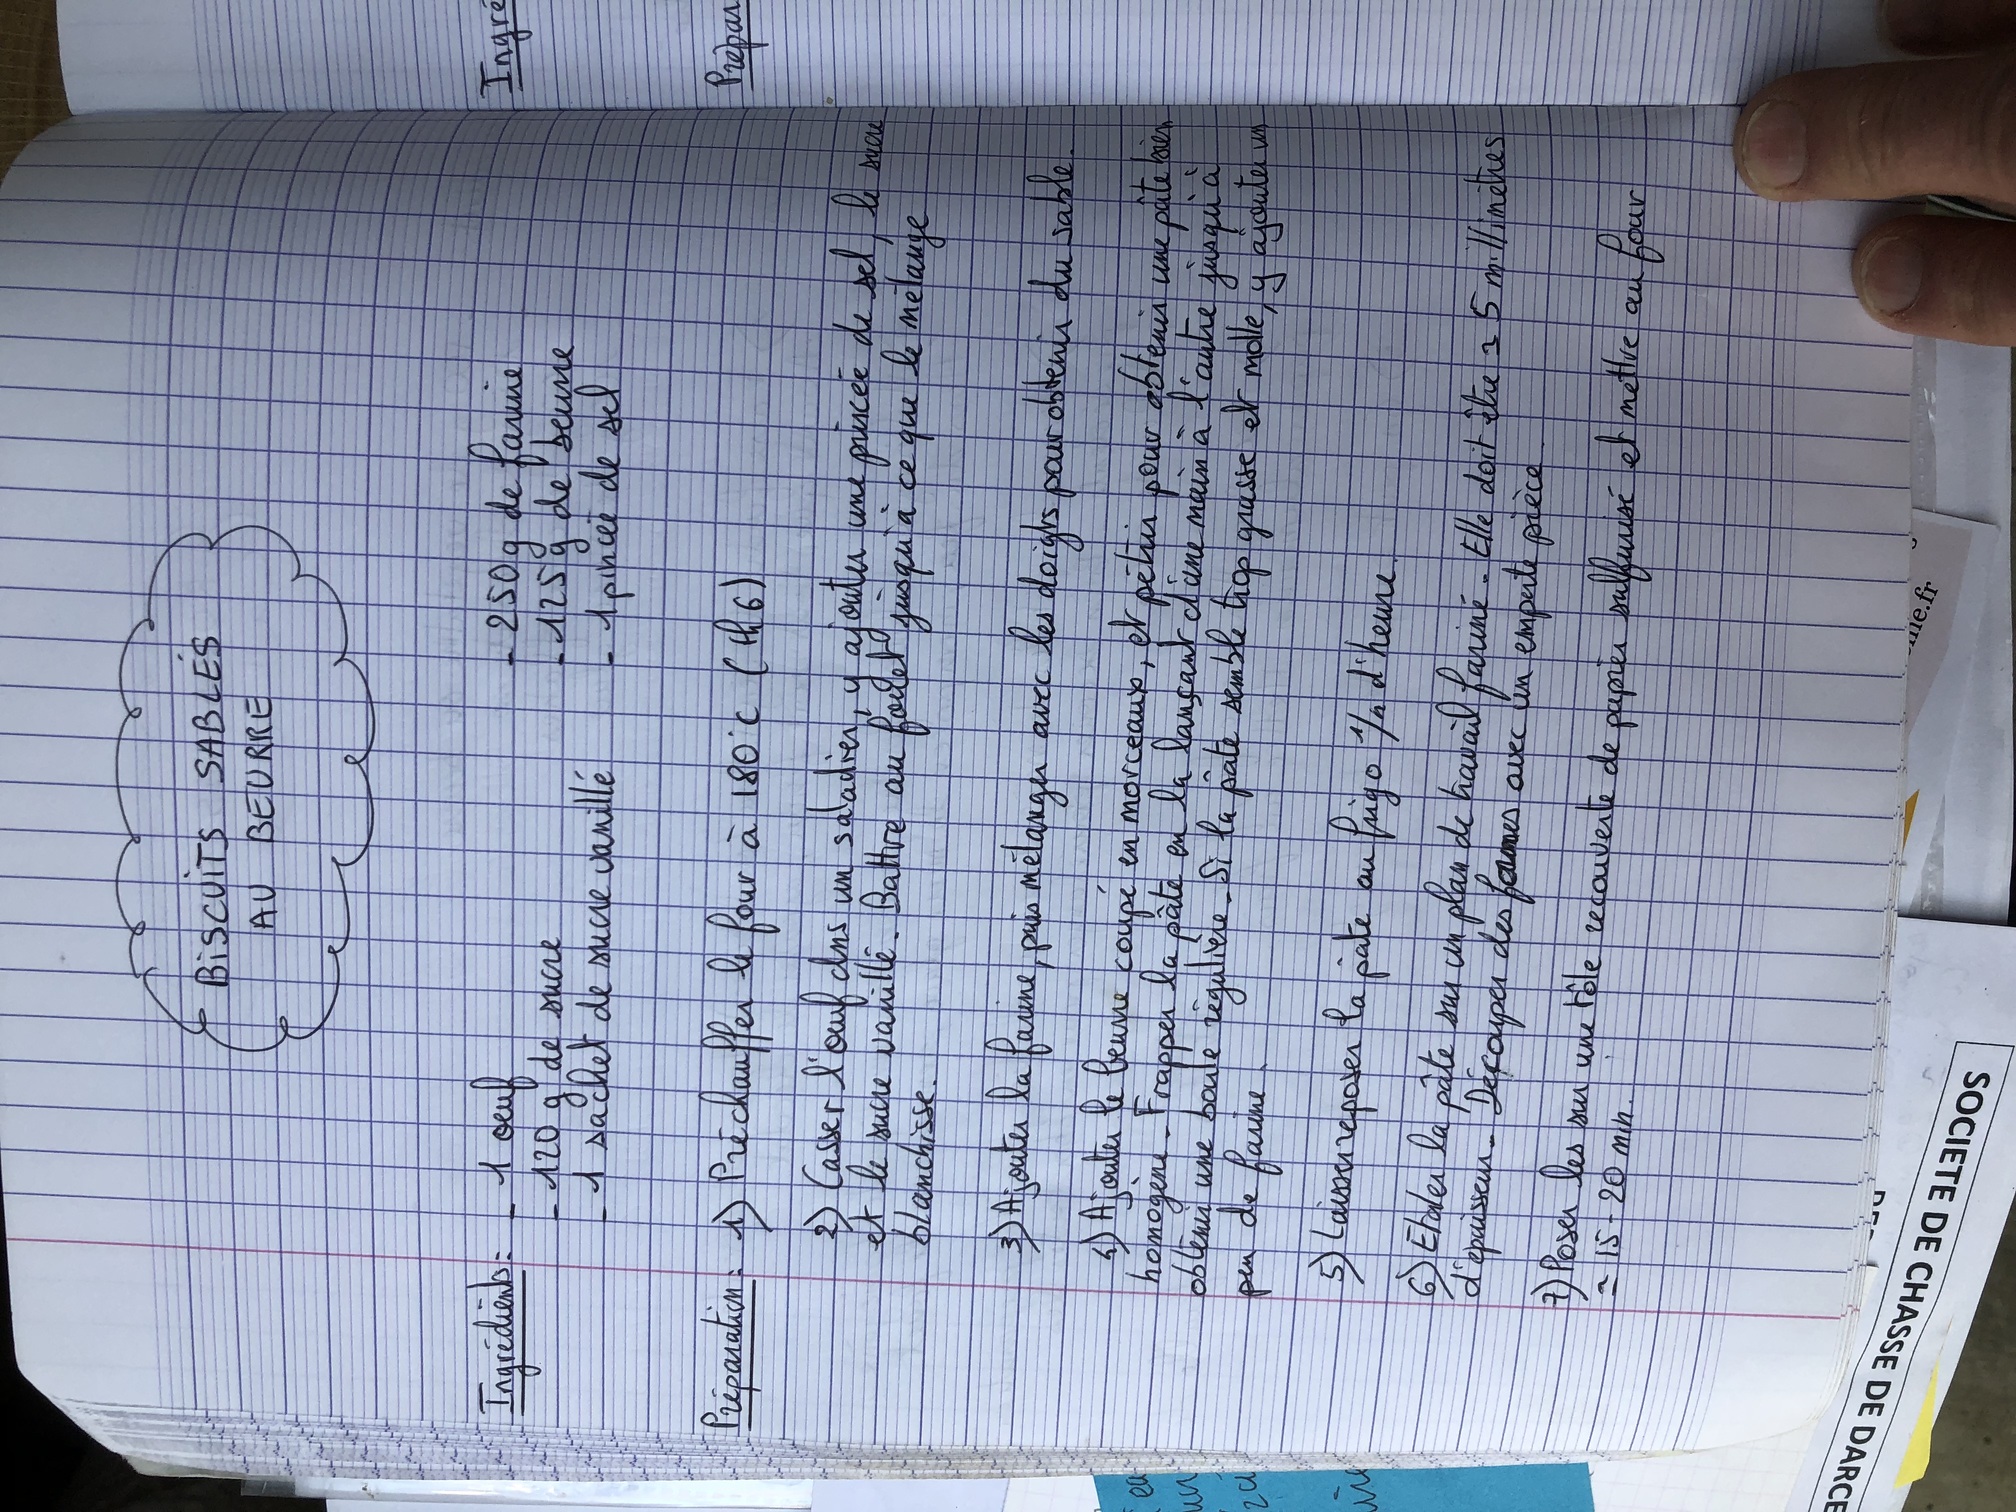 BISCUITS SABLÉS
AU BEURRE
Ingrédients: - 1 oeuf - 250 g de farine
- 120 g de sucre - 125 g de beurre
- 1 sachet de sucre vanillé - 1 pincée de sel
Préparation: 1) Préchauffer le four à 180°c (th6)
2) Casser l'oeuf dns un saladier, y ajouter une pincée de sel, le sucre
et le sucre vanillé. Battre au fouet jusqu'à ce que le mélange
blanchisse.
3) Ajouter la farine, puis mélanger avec les doigts pour obtenir du sable.
4) Ajouter le beurre coupé en morceaux, et pétrir pour obtenir une pâte bien
homogène - Frapper la pâte en la lançant d'une main à l'autre jusqu'à
obtenir une boule régulière - Si la pâte semble trop grasse et molle, y ajouter un
peu de farine.
5) Laisser reposer la pâte au frigo 1/2 d'heure.
6) Etaler la pâte sur un plan de travail fariné - Elle doit être ≃ 5 millimètres
d'épaisseur - Découper des formes avec un emporte pièce.
7) Poser les sur une tôle recouverte de papier sulfurisé et mettre au four
≃ 15-20 min.
Ingré
Prépar
SOCIETE DE CHASSE DE DARCE
nie.fr